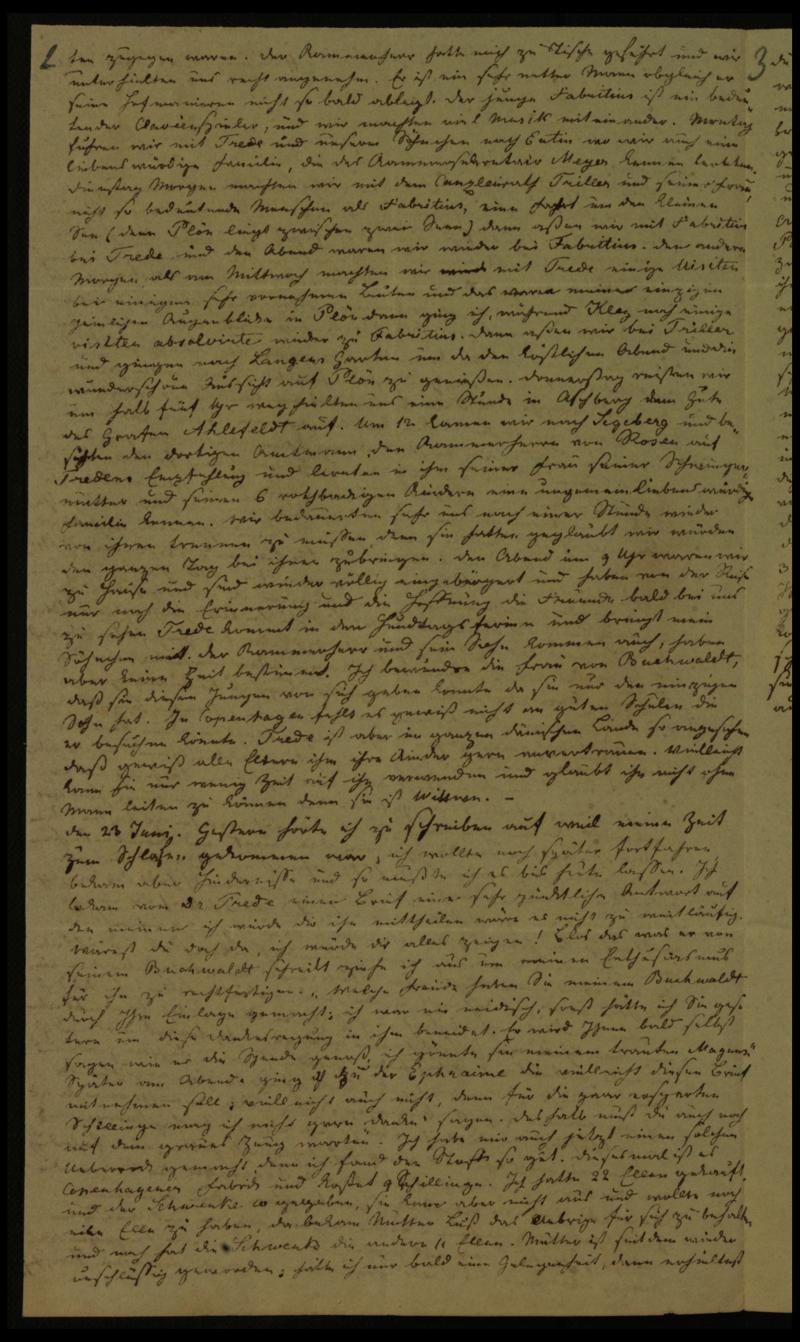 2 ten zugegen waren. Der Kammerherr hatte mich zu Tische geführt und wir
unterhielten uns recht angenehm. Er ist ein sehr netter Mann obgleich er
seine Hofmanieren nicht so bald ablegt. Der junge Fabritius ist ein bedeu-
tender Clavierspieler, und wir machten viel Musik mit einander. Montag
fuhren wir mit Trede und unserm Söhnchen nach Eutin wo wir auch eine
liebenswürdige Familie, die des Kammersekretair Meyer kennen lernten.
Dienstag Morgen machten wir mit dem Canzleirath Triller und seiner Frau,
nicht so bedeutende Menschen als Fabritius, eine Fahrt um den kleinen
See (denn Plön liegt zwischen zwei Seen) dann aßen wir mit Fabritius
bei Trede und den Abend waren wir wieder bei Fabritius. Den andern
Morgen, als am Mittwoch machten wir mit Trede einige Visiten
bei einigen sehr vornehmen Leuten und das waren meine einzigen
peinlichen Augenblicke in Plön dann ging ich, während Kley noch einige
visitten absolvirte wieder zu Fabritius. Dann aßen wir bei Triller
und gingen nach Langens Garten um da den köstlichen Abend und die
wunderschöne Aussicht auf Plön zu genießen. Donnerstag reisten wir
um halb fünf Uhr weg hielten uns eine Stunde in Aschberg dem Gute
des Grafen Ahlefeldt auf. Um 12 kamen wir nach Segeberg und be-
suchten den dortigen Amtmann, den Kammerherrn von Rosen auf
Tredens Empfehlung und lernten in ihm seiner Frau seiner Schwieger-
mutter und seinen 6 rothbackigen Kindern eine ungemein liebenswürdige
Familie kennen. Wir bedauerten sehr uns nach einer Stunde wieder
von ihnen trennen zu müssen denn sie hatten geglaubt wir würden
den ganzen Tag bei ihnen zubringen. Den Abend um 9 Uhr waren wir
zu Hause und sind wieder völlig eingebürgert und haben von der Reise
nur noch die Erinnerung und die Hoffnung die Freunde bald bei uns
zu sehen Trede kommt in den Hundtagsferien und bringt mein
Söhnchen mit. Der Kammerherr und sein Sohn kommen auch, haben
aber keine Zeit bestimmt. Ich bewundre die Frau von Buchwaldt,
daß sie diesen Jungen von sich geben konnte da sie nur den einzigen
Sohn hat. In Copenhagen fehlt es gewiß nicht an guten Schulen die
er besuchen könnte. Trede ist aber im ganzen dänischen Lande so angesehen
daß gewiß alle Eltern ihm ihre Kinder gern anvertrauen. Vielleicht
kann sie nur wenig Zeit auf ihn verwenden und glaubt ihn nicht ohne
Mann leiten zu können denn sie ist Wittwe. –
den 23 Junij. Gestern hörte ich zu schreiben auf weil meine Zeit
zum Schlafen gekommen war, ich wollte noch später fortfahren
bekam aber Hindernisse und so mußte ich es bis heute lassen. Ich
bekam von Dr Trede einen Brief eine sehr pünktliche Antwort auf
den meinen ich würde dir ihn mittheilen wäre es nicht zu weitläufig.
Wärest du doch da, ich würde dir alles zeigen! Blos das was er von
seinem Buchwaldt schreibt ziehe ich aus um meinen Enthusiasmus
für ihn zu rechtfertigen. „Welche Freude haben Sie meinem Buchwaldt
durch Ihre Einlage gemacht; ich war nie neidisch, sonst hätte ich Sie ges-
tern um diese Dankesregung in ihm beneidet. Er wird Ihnen bald selbst
sagen wie er die Spende genoß, ich gönnte sie meinem trauten Magnus"
Später am Abende ging ich zu der Ephraime die vielleicht diesen Brief
mitnehmen soll; vielleicht auch nicht, denn für die paar ersparten
Schillinge mag ich nicht gern „danke" sagen. Deshalb mußt du auch noch
auf dein graues Zeug warten. Ich habe mir auch jetzt einen solchen
Ueberrock gemacht denn ich fand den Stoff so gut. Diesesmal ist es
Copenhagener Fabrik und kostet 9 Schillinge. Ich hatte 22 Ellen gekauft,
und der Schwenke 10 gegeben, sie kam aber nicht aus und wollte noch
eine Elle zu haben, da bekam Mutter Lust das Uebrige für sich zu behalten
und noch hat die Schwenke die andern 11 Ellen. Mutter ist seitdem wieder
unschlüssig geworden; hätte ich nur bald eine Gelegenheit, dann erhieltest
3